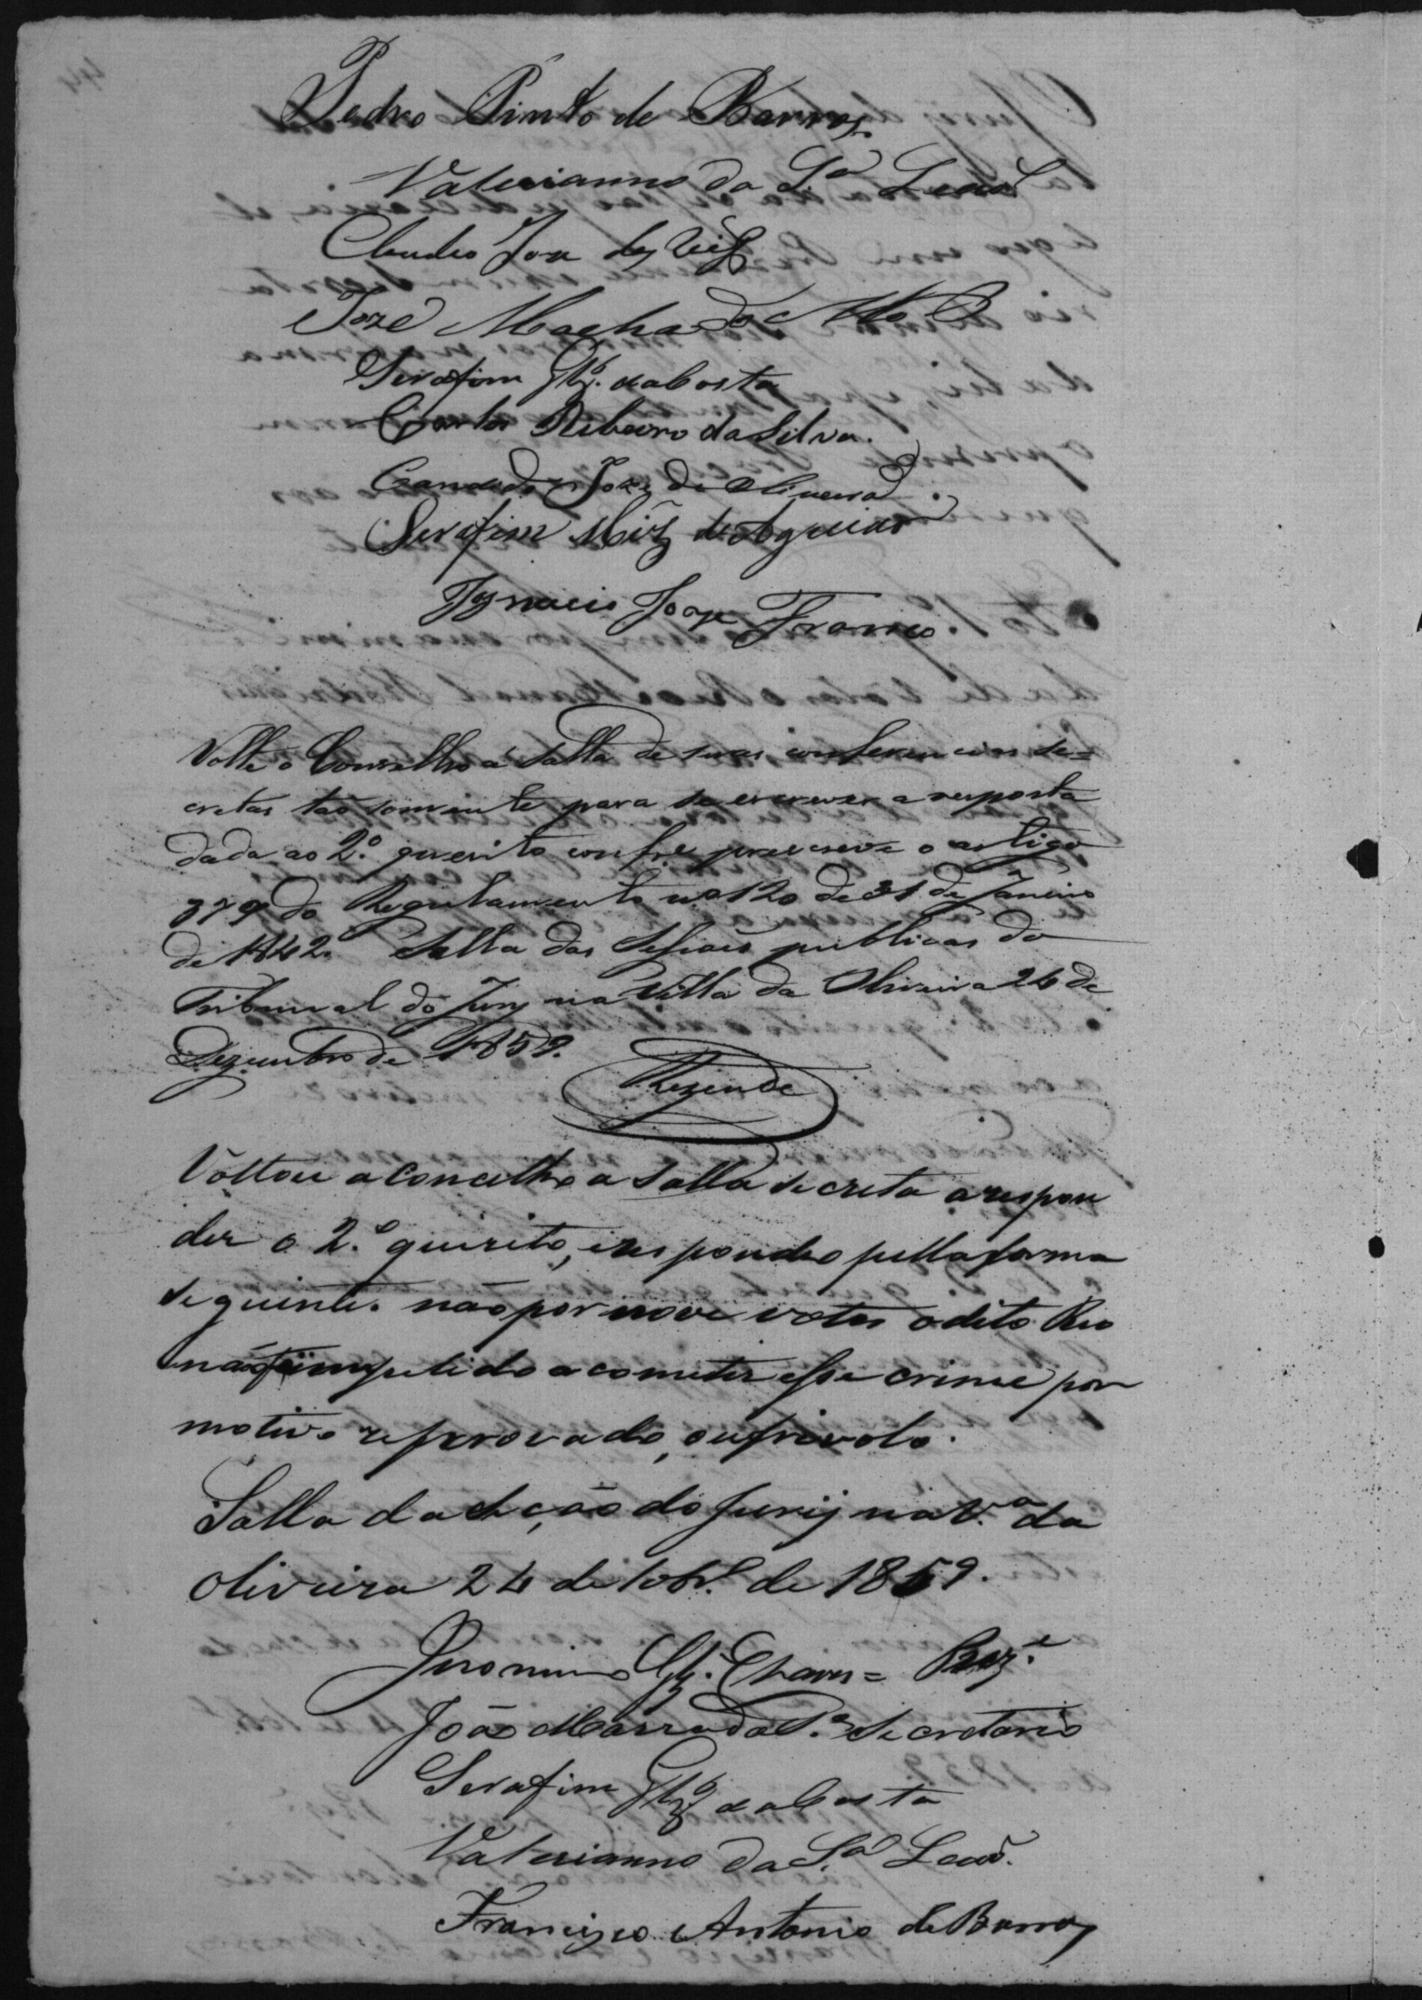 Pedro Pinto de Barros
Valerianno da S.ª Leaõ
Claudio Joze de
Joze Machado
Serafim Glz.' da Costa
Carlos Ribeiro da Silva.
Joze de Oliveira
Serafim Miz de Aguiar
Ignacio Joze Franco
Volte o Conselho a Salla de suas conferencias se=
cretas taõ somente para se escrever a resposta
dada ao 2.º quesito conf.e prescreve o artigo
379 do Regulamento nº 120 de 31 de Janeiro
de 1842. Salla das Sessões publicas do
Tribunal do Jury na Villa da Oliveira 24 de
Dezembro de 1859.
Rezende
Voltou a concelho a Salla secreta a respon
der o 2.º quisito, e respondeo pella forma
seguinte. não por nove votos o dito Reo
não foi impelido a cometer esse crime por
motivo reprovado, ou frivolo.
Salla da Seção do Jurij na V.ª da
Oliveira 24 de 10br.º de 1859.
Jeronimo Glz.' Chaves = Prez.e
João da S.ª Secretario
Serafim Glz da Costa
Valerianno da S.ª Leaõ.
Francisco Antonio de Barros